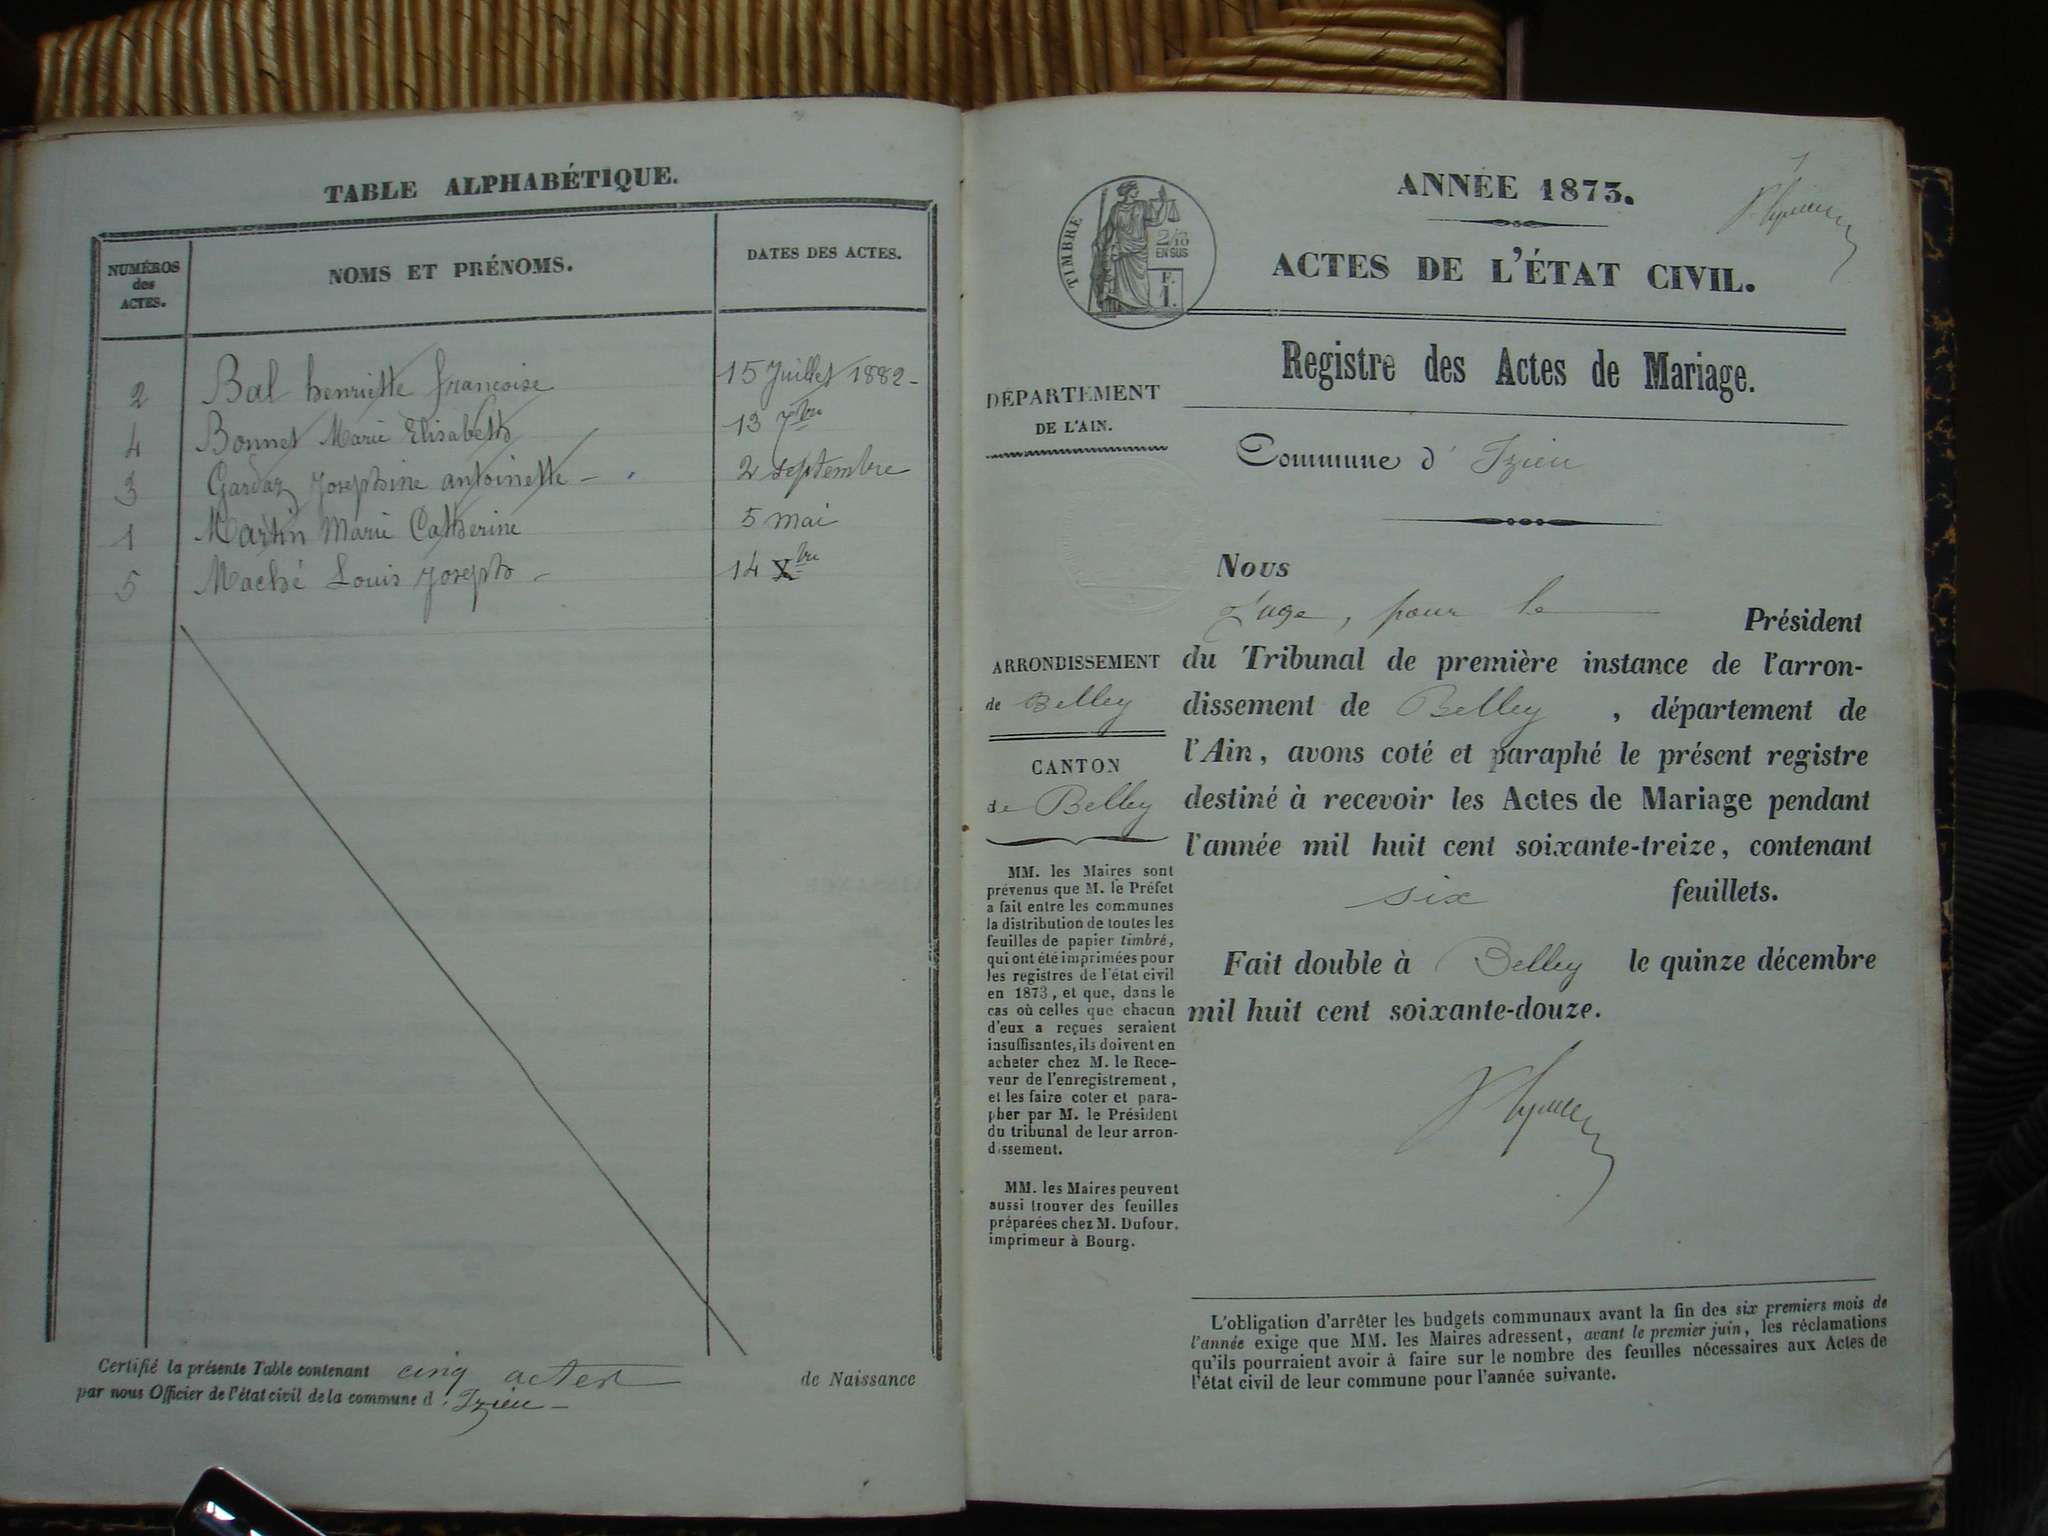 TABLE ALPHABÉTIQUE.
NUMÉROS
des
ACTES.
NOMS ET PRÉNOMS.
DATES DES ACTES.
2 Bal henriette françoise 15 Juillet 1882 -
4 Bonnet Marie Elisabeth 13 7bre
3 Gardaz Josephine antoinette - 2 septembre
1 Martin Marie Catherine 5 mai
5 Maché Louis Joseph - 14 Xbre
Certifié la présente Table contenant cinq actes de Naissance
par nous Officier de l'état civil de la commune d'Izieu -
TIMBRE
2/10
EN SUS
F.
1.
ANNÉE 1873.
ACTES DE L'ÉTAT CIVIL.
Registre des Actes de Mariage.
DÉPARTEMENT
DE L'AIN.
Commune d'Izieu
ARRONDISSEMENT
de Belley
CANTON
de Belley
MM. les Maires sont
prévenus que M. le Préfet
a fait entre les communes
la distribution de toutes les
feuilles de papier timbré,
qui ont été imprimées pour
les registres de l'état civil
en 1873, et que, dans le
cas où celles que chacun
d'eux a reçues seraient
insuffisantes, ils doivent en
acheter chez M. le Rece-
veur de l'enregistrement,
et les faire coter et para-
pher par M. le Président
du tribunal de leur arron-
dissement.
MM. les Maires peuvent
aussi trouver des feuilles
préparées chez M. Dufour,
imprimeur à Bourg.
Nous
Juge, pour le Président
du Tribunal de première instance de l'arron-
dissement de Belley, département de
l'Ain, avons coté et paraphé le présent registre
destiné à recevoir les Actes de Mariage pendant
l'année mil huit cent soixante-treize, contenant
six feuillets.
Fait double à Belley le quinze décembre
mil huit cent soixante-douze.
L'obligation d'arrêter les budgets communaux avant la fin des six premiers mois de
l'année exige que MM. les Maires adressent, avant le premier juin, les réclamations
qu'ils pourraient avoir à faire sur le nombre des feuilles nécessaires aux Actes de
l'état civil de leur commune pour l'année suivante.